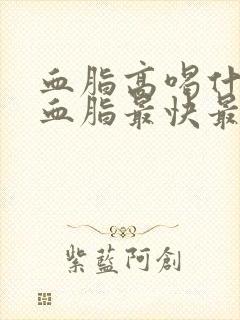 血脂高喝什
血脂最快最
紫藍阿創